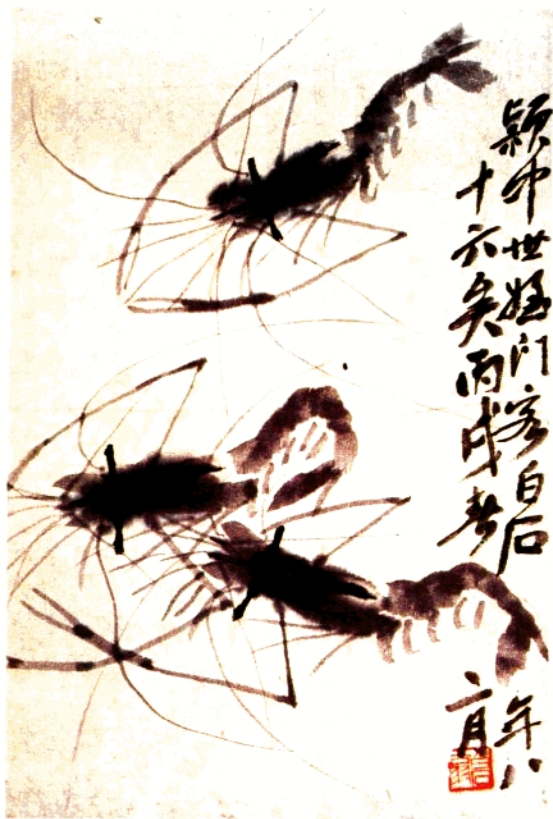 颖中世姪门客白石年八
十六矣丙戌春二月